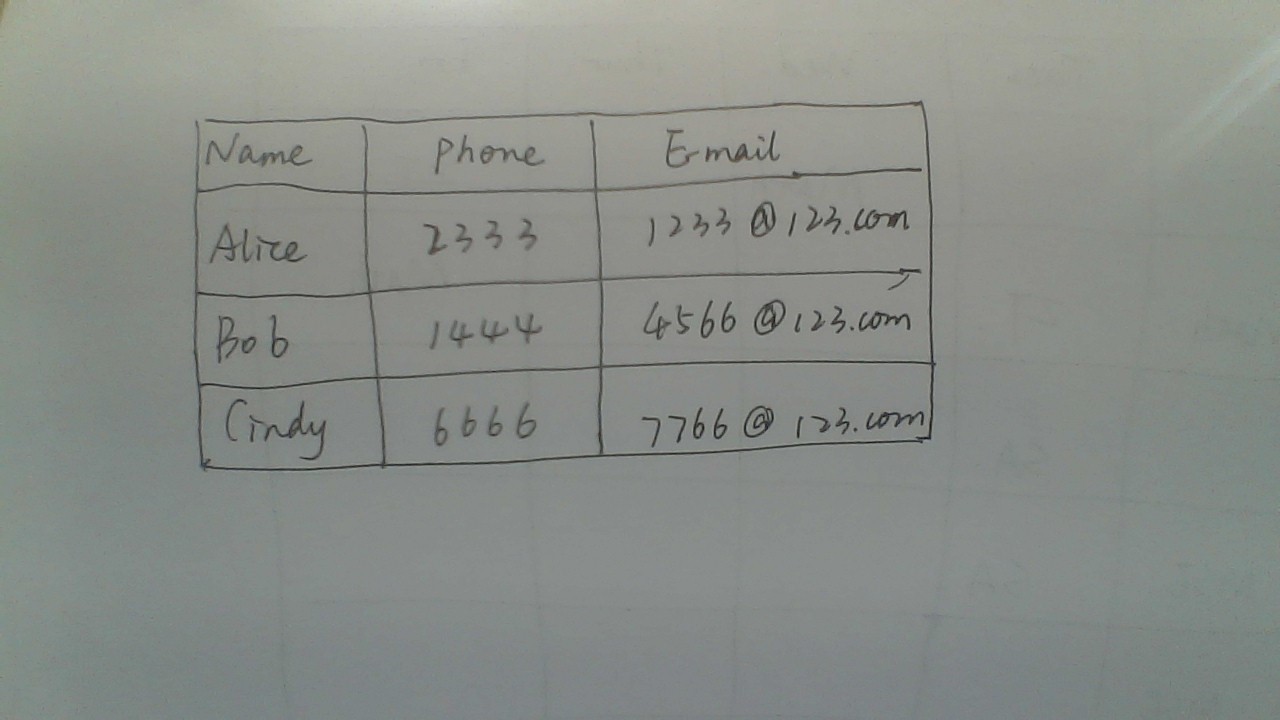 Name Phone E-mail
Alice 2333 1233@123.com
Bob 1444 4566@123.com
Cindy 6666 7766@123.com